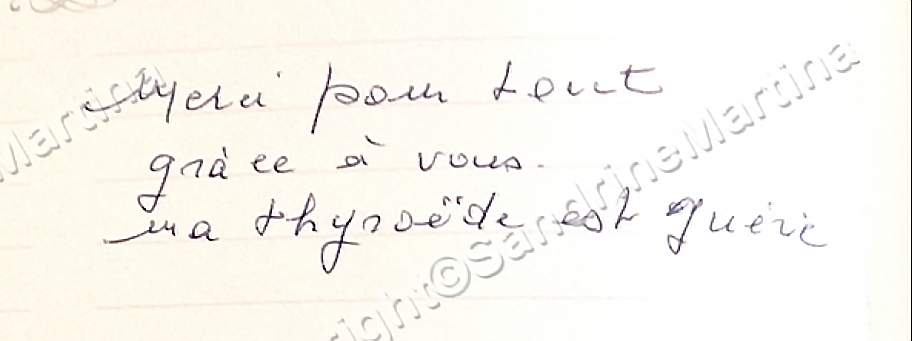 Merci pour tout
grâce à vous.
ma thyroëde est guérie
Martina
right©SandrineMartina